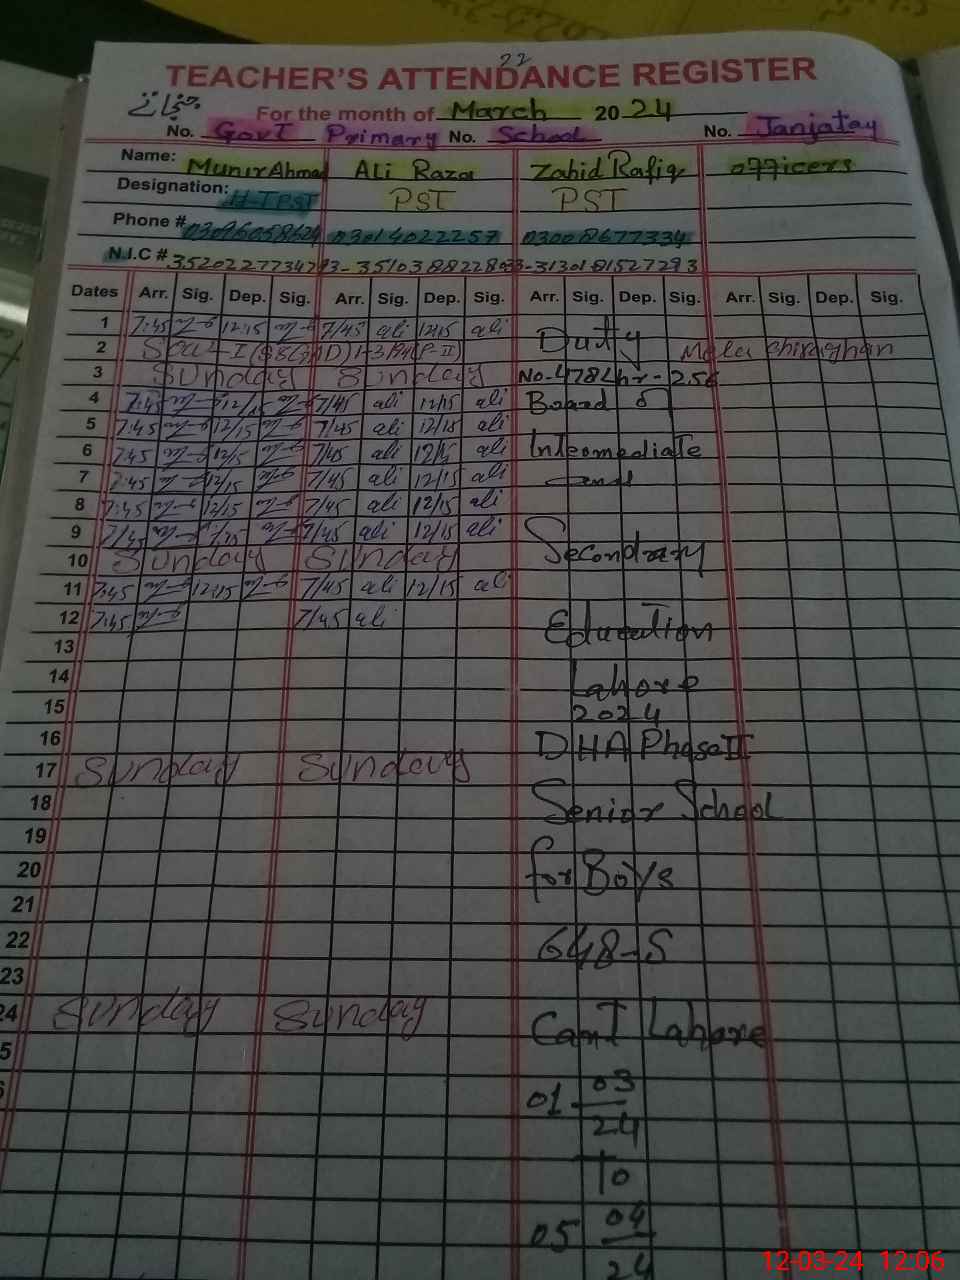 22
TEACHER'S ATTENDANCE REGISTER
For the month of March 2024
No. Govt Primary No. School No. Janjatay
Name: Munir Ahmad Ali Raza Zahid Rafiq officers
Designation: H-TPST PST PST
Phone # 03096058624 03014022257 03008677334
N.I.C #
Dates Arr. Sig. Dep. Sig. Arr. Sig. Dep. Sig. Arr. Sig. Dep. Sig. Arr. Sig. Dep. Sig.
1 7:45 12:15 7/45 ali 12/15 ali Duty
2 Mela Chiraghan
3 Sunday Sunday No. 478 Lhr-256
4 7:45 12/15 7/45 ali 12/15 ali Board of
5 7:45 12/15 7/45 ali 12/15 ali
6 7:45 12/15 7/45 ali 12/15 ali Intermediate
7 7:45 12/15 7/45 ali 12/15 ali and
8 7:45 12/15 7/45 ali 12/15 ali
9 7/45 7/45 ali 12/15 ali
10 Sunday Sunday Secondrary
11 7:45 12:15 7/45 ali 12/15 ali
12 7:45 7/45 ali
13 Education
14
15 Lahore
2024
16 DHA Phase II
17 Sunday Sunday
18 Senior School
19
20 for Boys
21
22 648-S
23
24 Sunday Sunday Cant Lahore
5
01 03
24
To
05 04
24
12-03-24 12:06